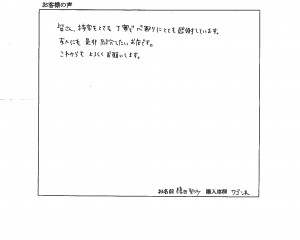 お客様の声
皆さん、接客もとても丁寧で心配りにとても感謝しています。
友人にも是非紹介したいお店です。
これからもよろしくお願いします。
お名前 購入車種 ワゴンR